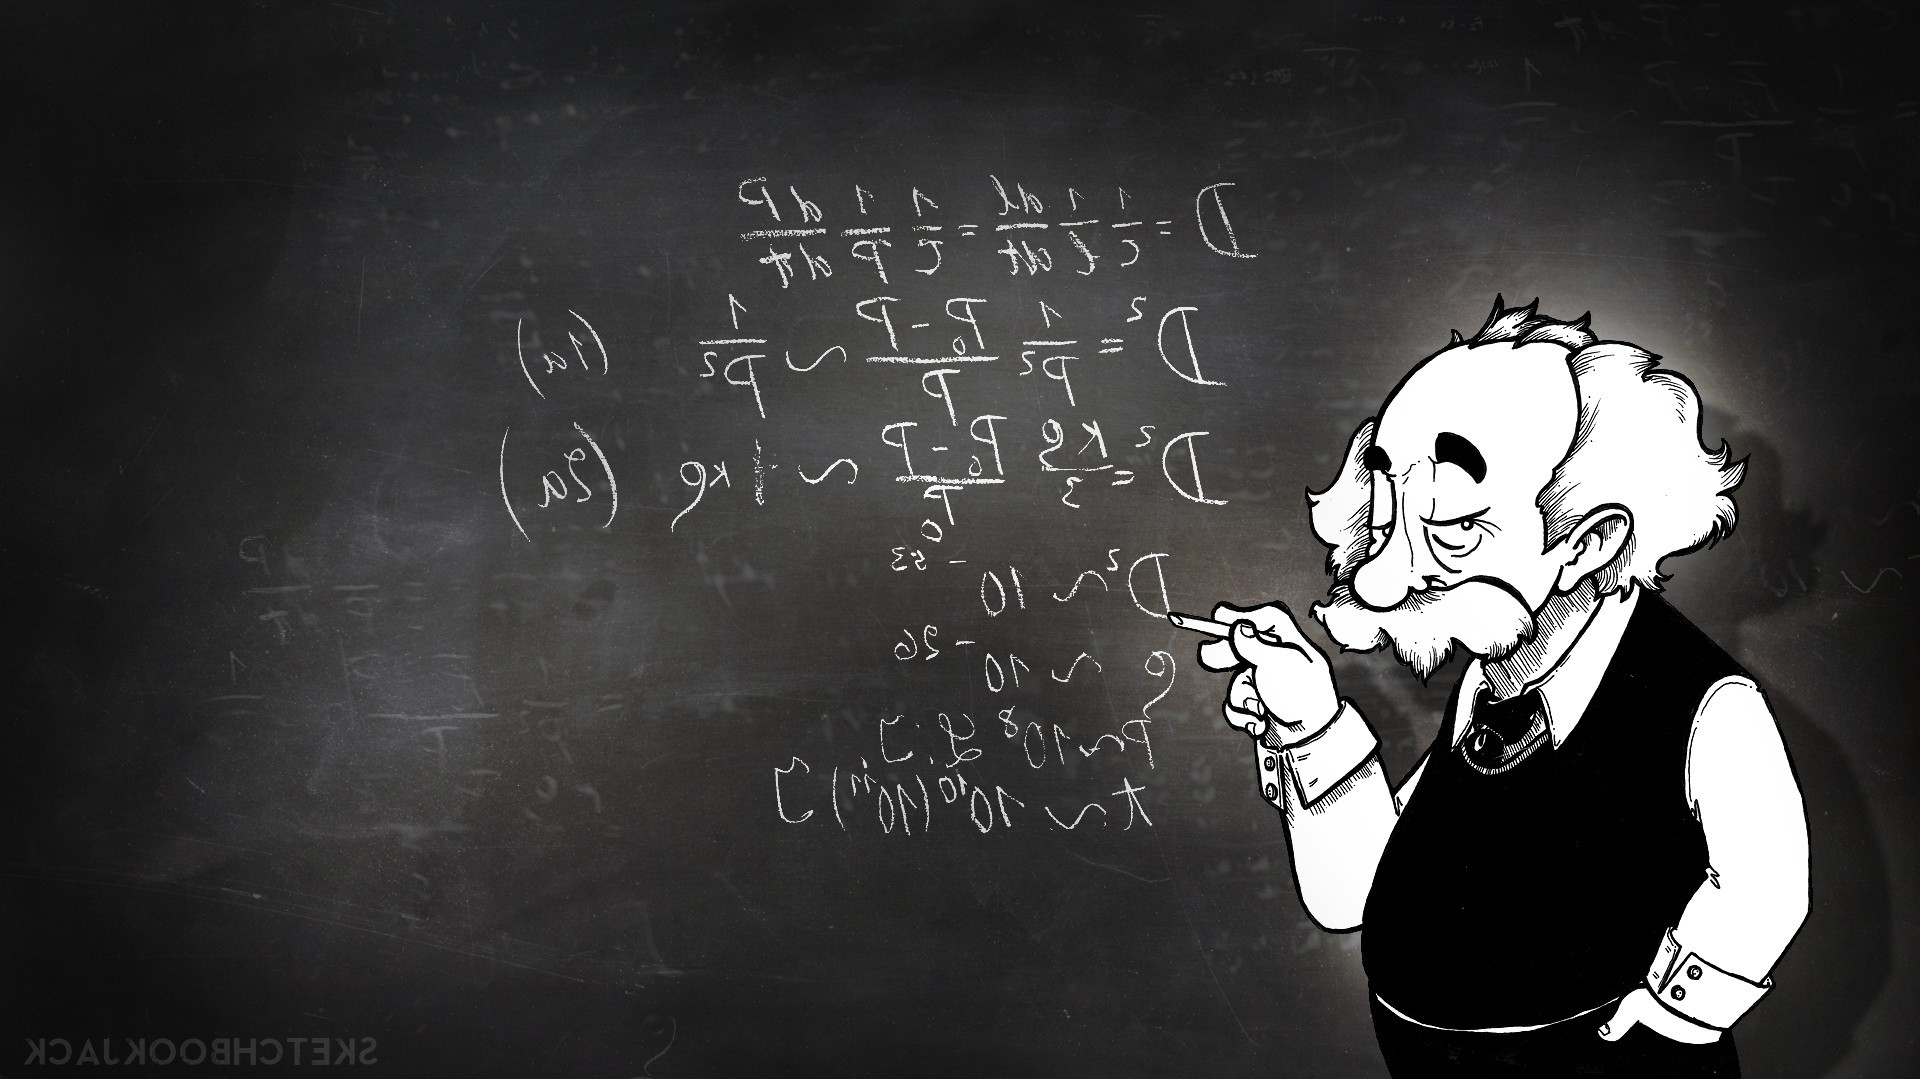 D = 1/c 1/l dl/dt = 1/c 1/P dP/dt
D² = 1/P² P₀-P/P ~ 1/P² (1a)
D² = κρ/3 P₀-P/P₀ ~ 1/3 κρ (2a)
D² ~ 10⁻⁵³
ρ ~ 10⁻²⁶
P ~ 10⁸ L.J.
t ~ 10¹⁰(10¹¹) J
SKETCHBOOKJACK